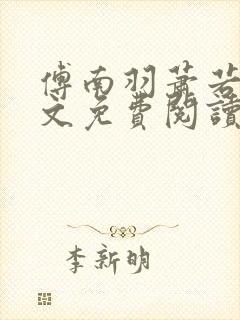 傅南羽蕭若
文免費閱讀
李新明